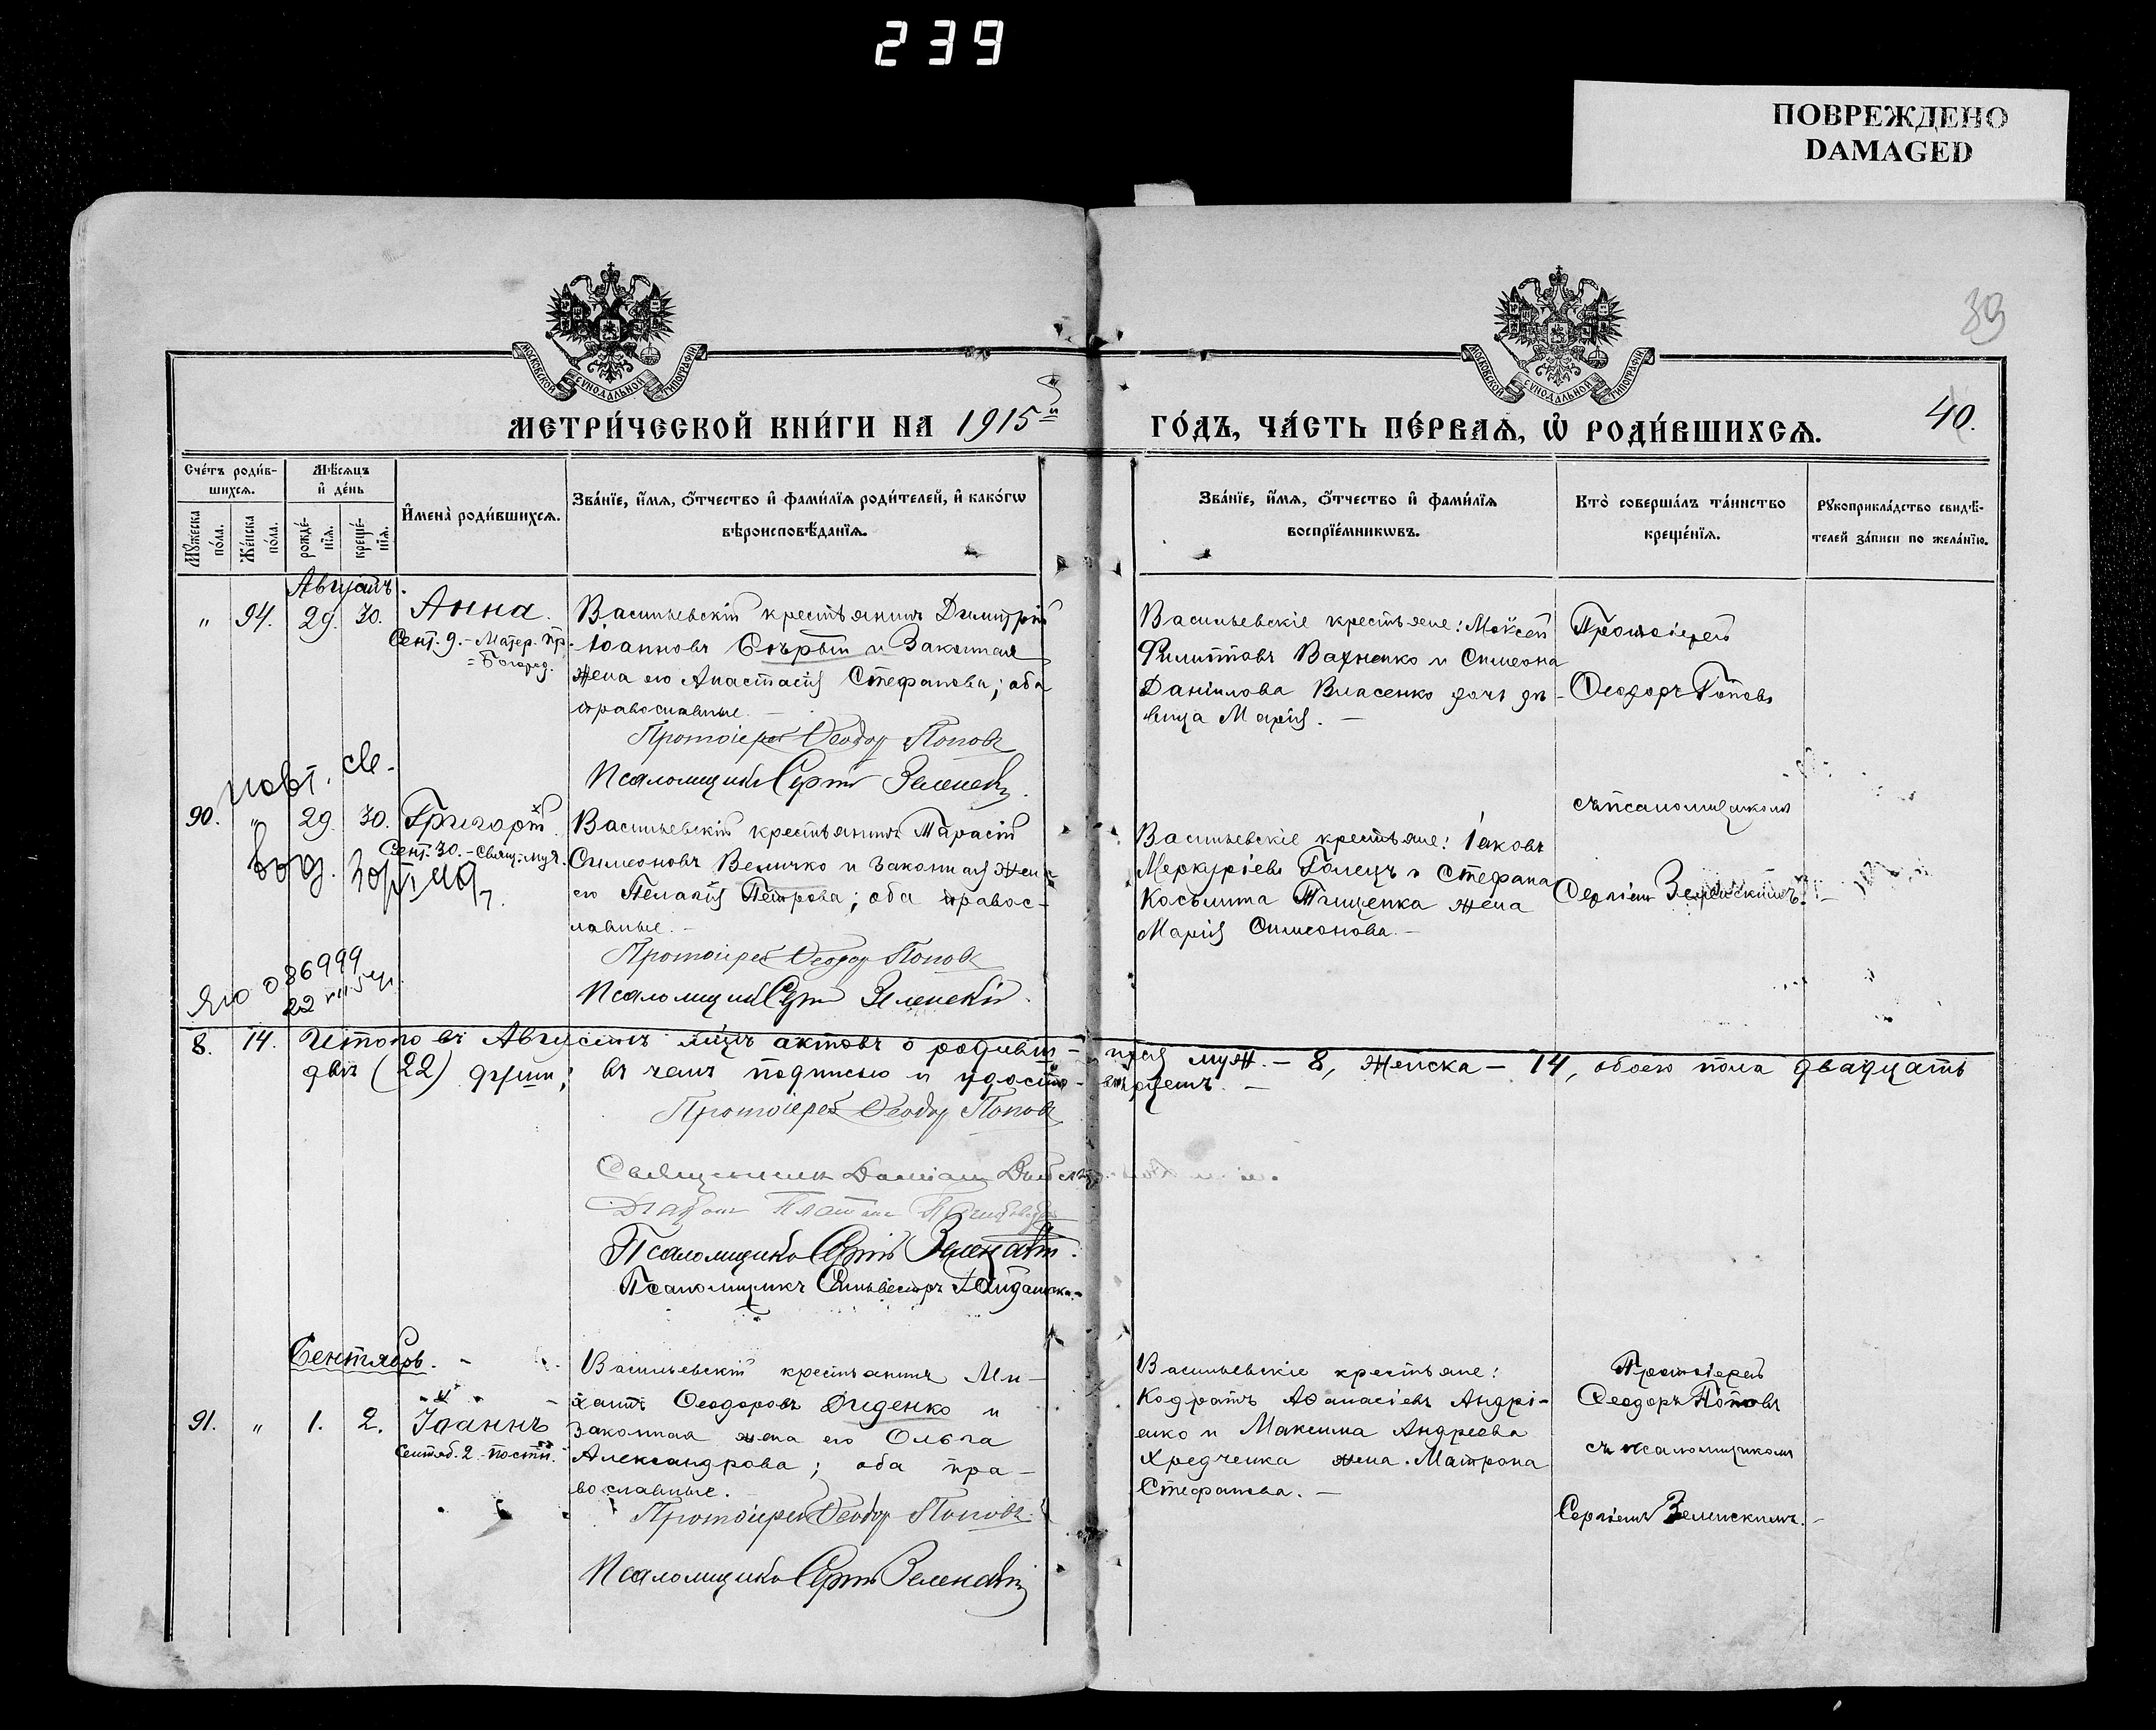 239
ПОВРЕЖДЕНО
DAMAGED
39
МОСКОВСКОЙ СѴНОДАЛЬНОЙ ТИПОГРАФІИ
МОСКОВСКОЙ СѴНОДАЛЬНОЙ ТИПОГРАФІИ
МЕТРИ́ЧЕСКОЙ КНИ́ГИ НА 1915й
ГО́ДЪ, ЧА́СТЬ ПЕ́РВАѦ, Ѡ҆ РОДИ́ВШИХСѦ.
40.
Сче́тъ роди́в-
шихсѧ.
Мѣ́сѧцъ
и҆ де́нь
Мꙋ́жеска по́ла.
Же́нска по́ла.
рожде́-нїѧ.
креще́-нїѧ.
И҆мена̀ роди́вшихсѧ.
Зва́нїе, и҆́мѧ, ѻ҆́тчество и҆ фами́лїѧ роди́телей, и҆ како́гѡ
вѣроисповѣ́данїѧ.
Зва́нїе, и҆́мѧ, ѻ҆́тчество и҆ фами́лїѧ
воспрїе́мникѡвъ.
Кто̀ соверша́лъ та́инство
креще́нїѧ.
Рꙋкоприкла́дство свидѣ́-
телей за́писи по жела́нїю.
Августъ.
" 94. 29. 30. Анна.
Сент. 9. - Матер. Пр.
= Богород.
Васильевскій крестьянинъ Димитрій
Іоанновъ Сѣрый и законная
жена его Анастасія Стефанова; оба
православные. —
Протоіерей Ѳеодор Поповъ
Псаломщикъ Сергій Зеленскій.
Васильевскіе крестьяне: Моѵсей
Филипповъ Вахненко и Симеона
Даніилова Власенко дочь дѣ-
вица Марія. —
Протоіерей
Ѳеодоръ Поповъ
съ псаломщикомъ
Сергіемъ Зеленскимъ. —
повт. св.
90. " 29. 30. Григорій.
Сент. 30. - Свящ.-муч.
Васильевскій крестьянинъ Тарасій
Симеоновъ Величко и законная жен-
его Пелагія Петрова; оба правос-
лавные. —
Протоіерей Ѳеодор Поповъ
Псаломщикъ Сергій Зеленскій.
ЯЮ 086999
22
Васильевскіе крестьяне: Іаковъ
Меркуріевъ Голецъ и Стефана
Косьмина Тищенка жена
Марія Симеонова. —
8. 14. Итого въ Августѣ мцѣ актовъ о родивш- ихся муж. — 8, женска — 14, обоего пола двадцать
двѣ (22) души; въ чемъ подписью и удосто- вѣряемъ. —
Протоіерей Ѳеодор Поповъ
Священникъ Даміан
Діаконъ Платонъ
Псаломщикъ Сергій Зеленскій.
Псаломщикъ Сильвестръ
Сентябрь. —
91. " 1. 2. Іоаннъ
Сентяб. 2. - постн.
Васильевскій крестьянинъ Ми-
хаилъ Ѳеодоровъ Диденко и
законная жена его Ольга
Александрова; оба пра-
вославные. —
Протоіерей Ѳеодор Поповъ
Псаломщикъ Сергій Зеленскій
Васильевскіе крестьяне:
Кодратъ Аѳанасіевъ Андрі-
енко и Максима Андреева
Хредченка жена Матрона
Стефанова. —
Протоіерей
Ѳеодоръ Поповъ
съ псаломщикомъ
Сергіемъ Зеленскимъ. —